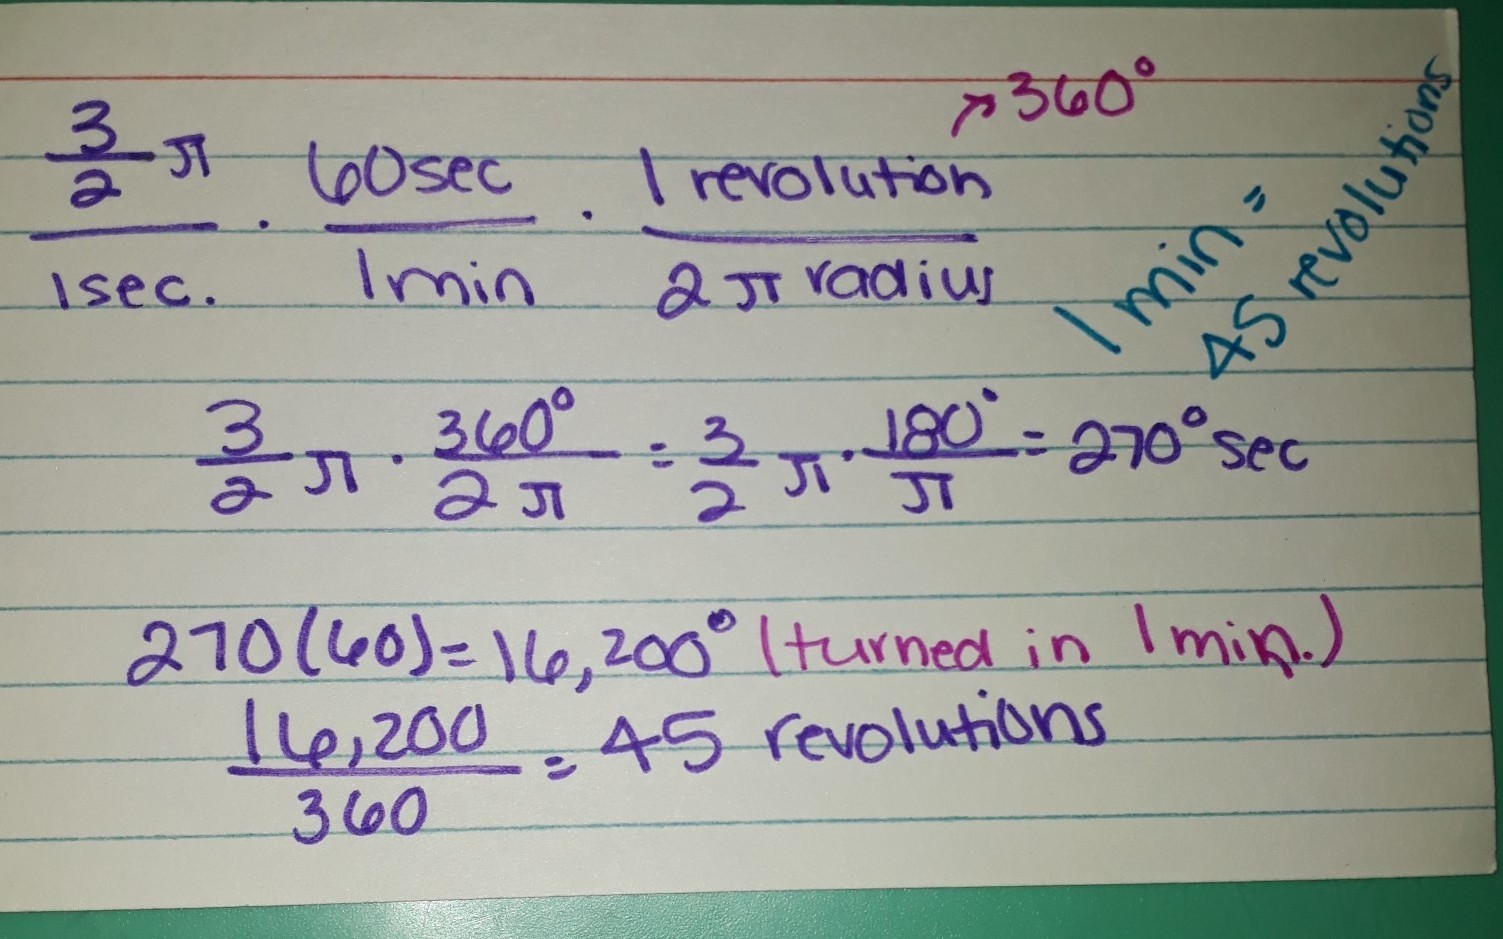 ↗360°
3/2 π / 1sec. · 60sec / 1min · 1 revolution / 2π radius
1 min =
45 revolutions
3/2 π · 360° / 2π = 3/2 π · 180° / π = 270° sec
270(60)=16,200° (turned in 1 min.)
16,200 / 360 = 45 revolutions